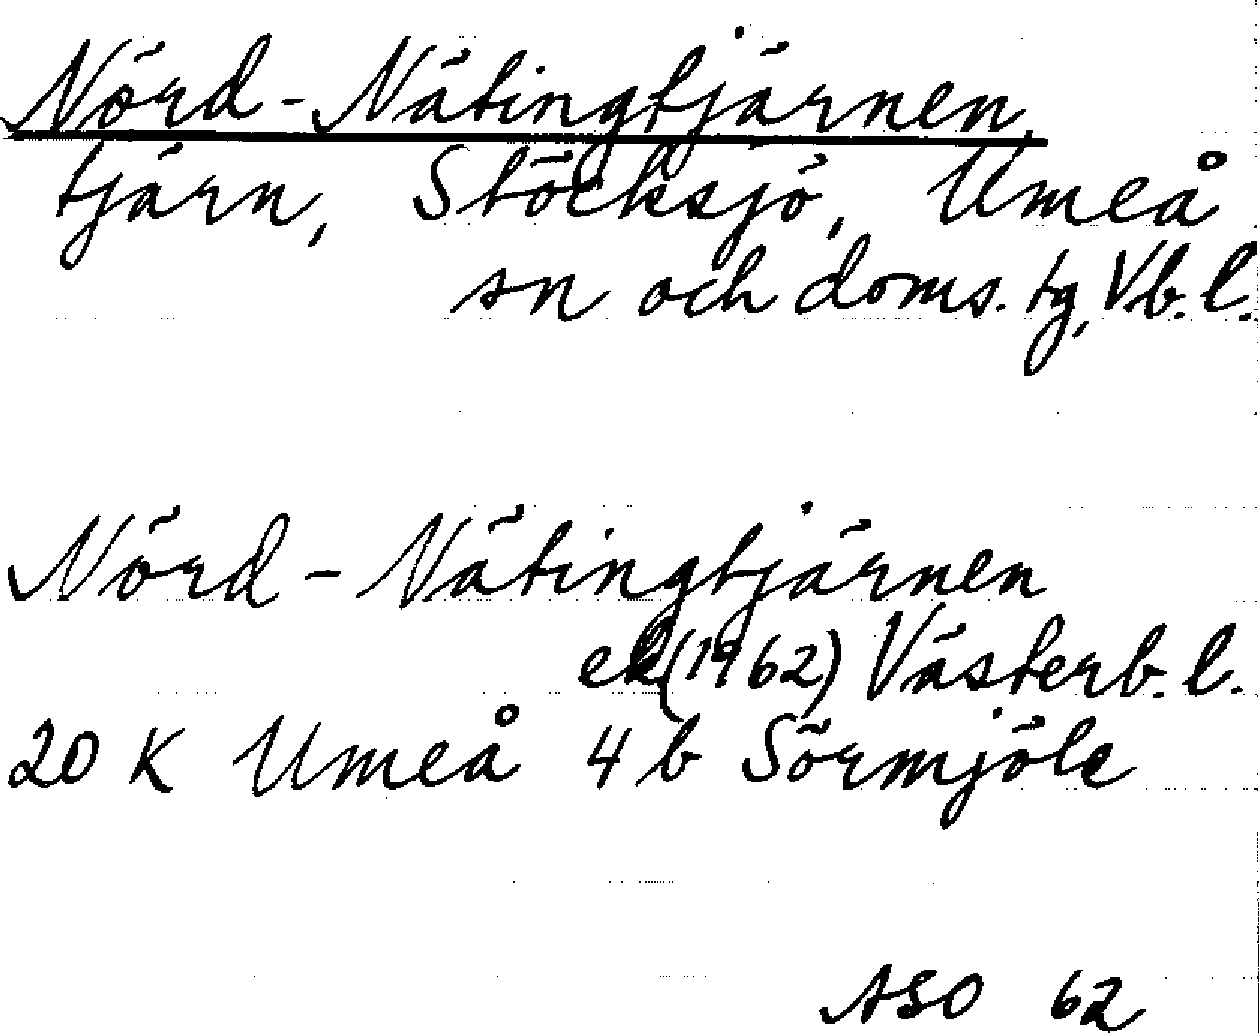 Nörd-Nätingtjärnen,
tjärn, Stöcksjö, Umeå
sn och doms. tg, Vb. l.
Nörd-Nätingtjärnen
ek (1962) Västerb. l.
20 K Umeå 4 b Sörmjöle
ASO 62